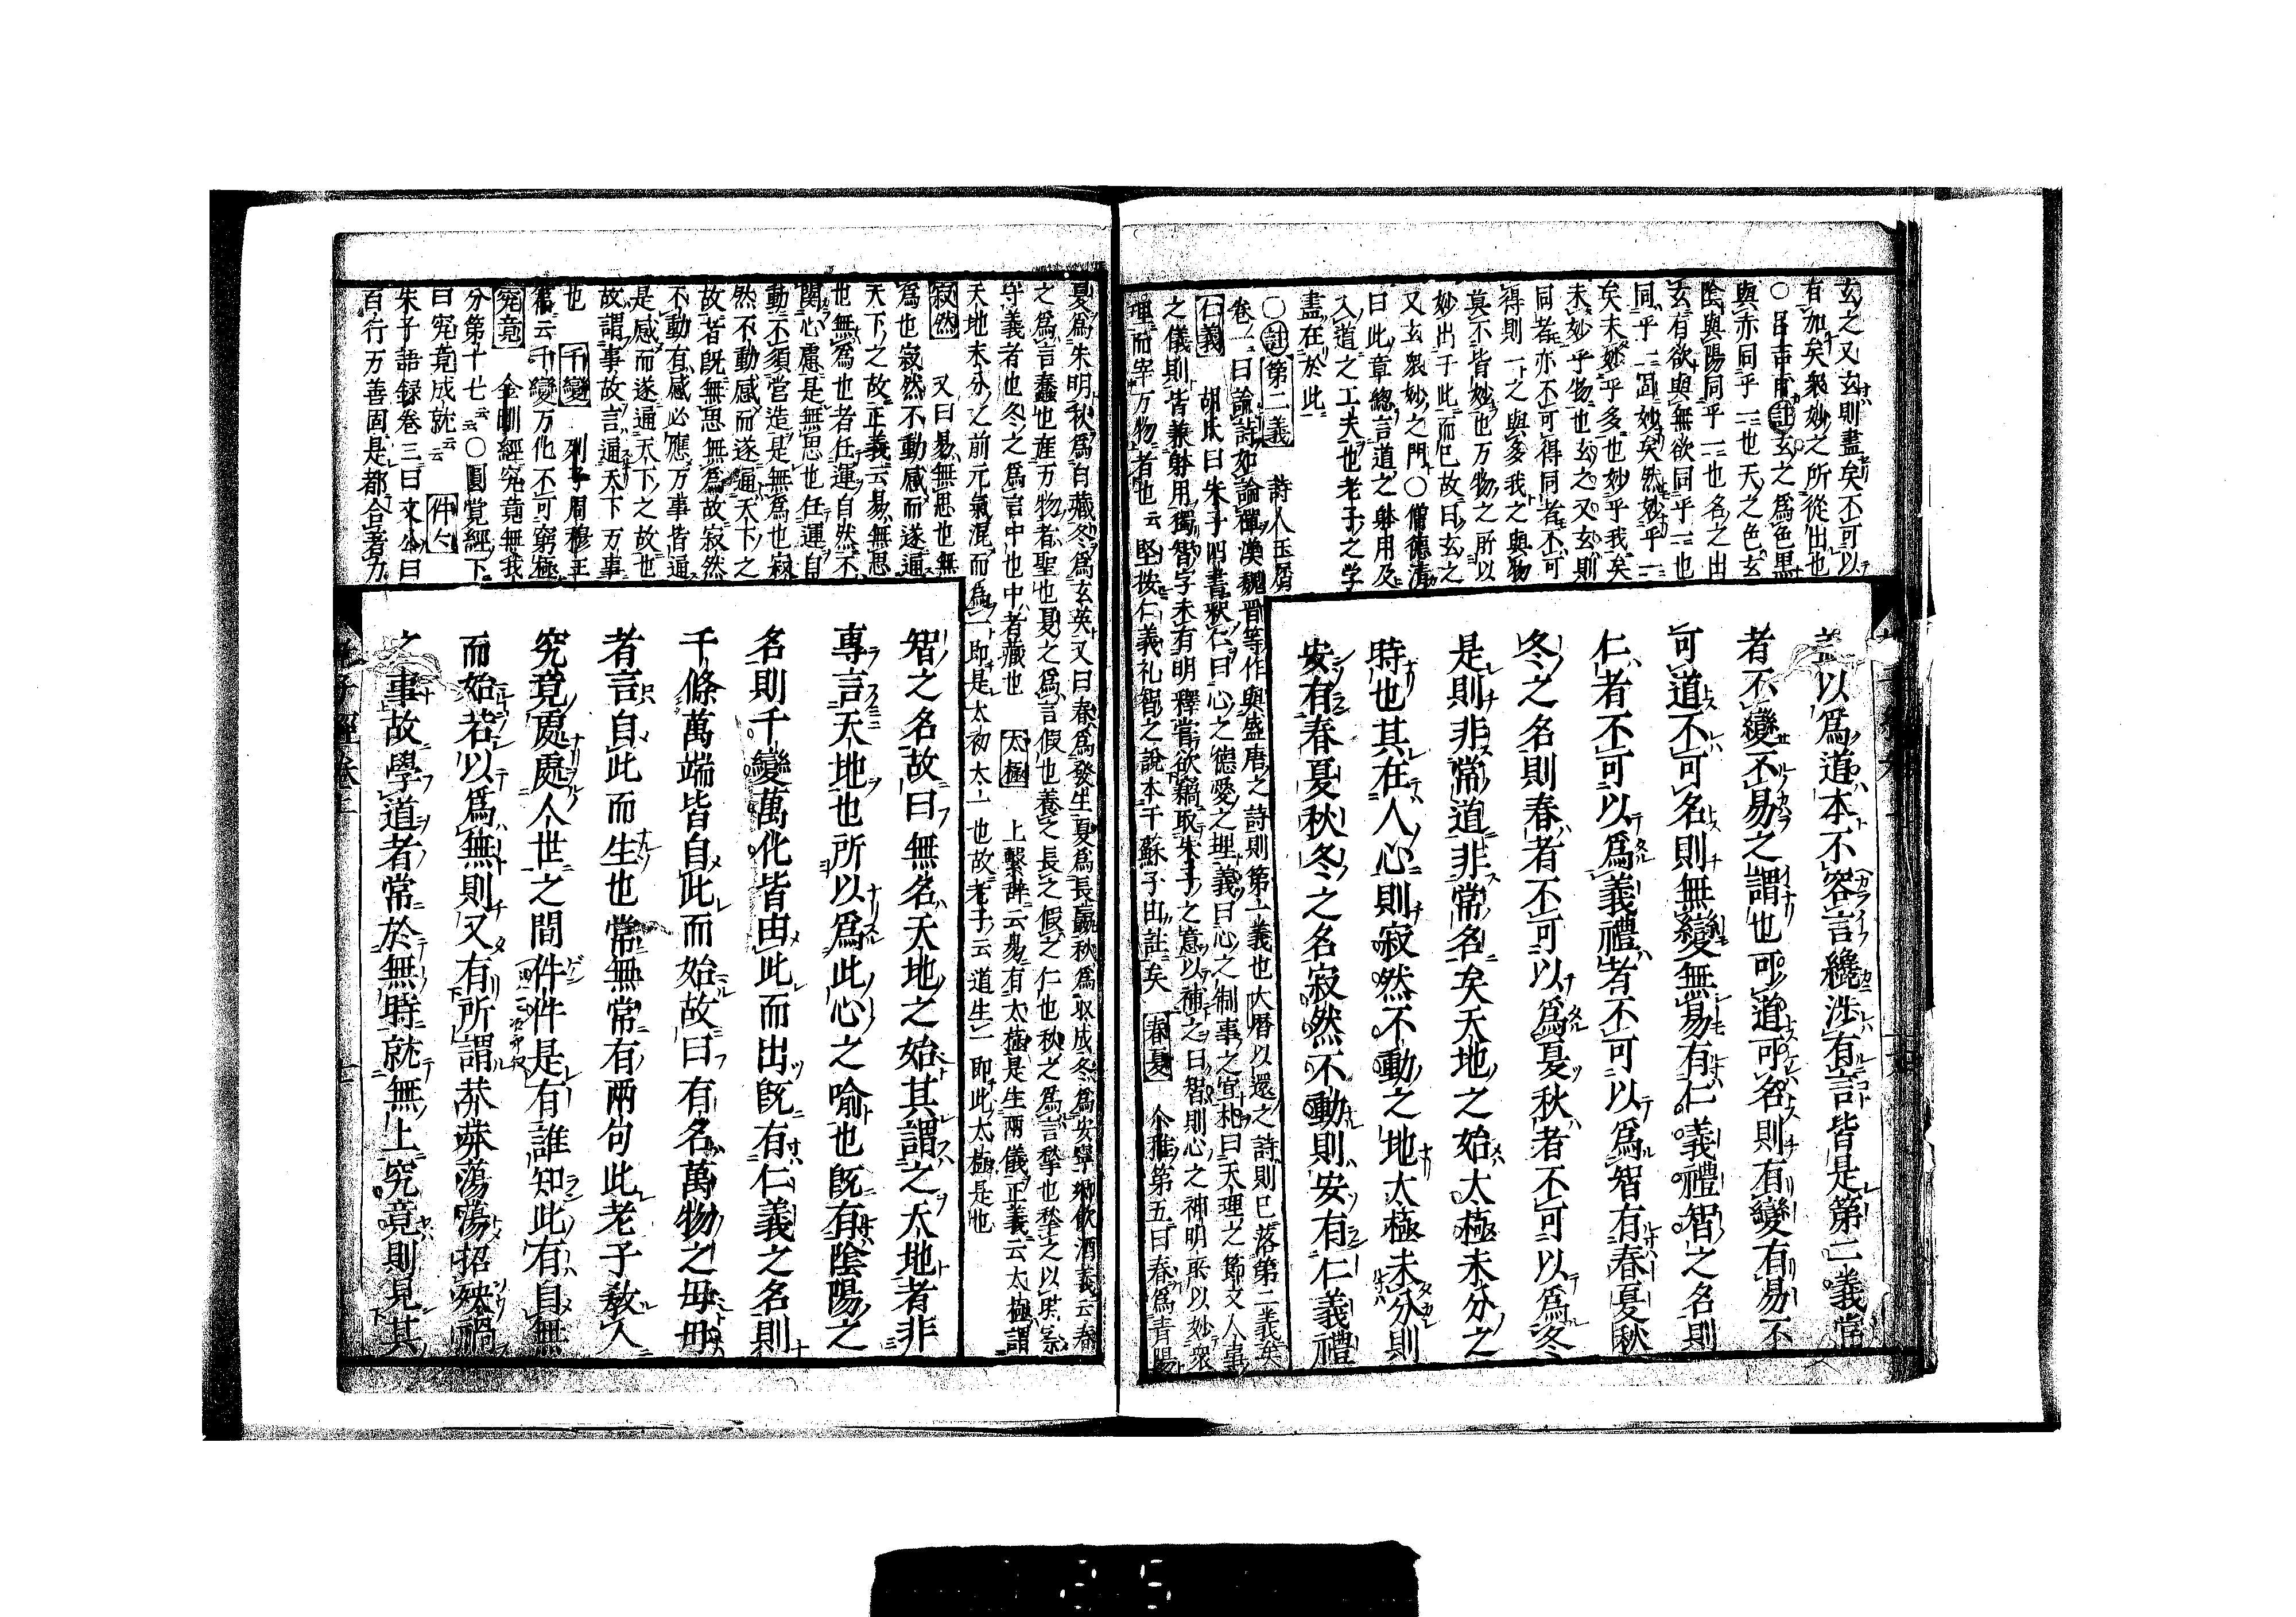 玄之又玄則盡矣不可以
有加矣衆妙之所從出也
○呂吉甫註玄之爲色黒
與亦同乎一也天之色玄
陰與陽同乎一也名之出
玄有欲與無欲同乎一也
同乎一冝妙矣然妙乎一
矣未妙乎多也妙乎我矣
未妙乎物也玄之又玄則
同者亦不可得同者不可
得則一之與多我之與物
莫不皆妙也万物之所以
妙出于此而已故曰玄之
又玄衆妙之門○僧德清
曰此章緫言道之躰用及
入道之工夫也老子之学
盡在於此
○註第二義　詩人玉屑
卷一曰論詩如論禪漢魏晉等作與盛唐之詩則第一義也大暦以還之詩則已落第二義矣
仁義　胡氏曰朱子四書釈仁曰心之德愛之理義曰心之制事之宜礼曰天理之節文人事
之儀則皆兼躰用獨智字未有明釋嘗欲竊取朱子之意以補之曰智則心之神明所以妙衆
理而宰万物者也云堅按仁義礼智之說本于蘇子由註矣　春夏　尒雅第五曰春爲青陽
蓋以爲道本不容言纔涉有言皆是第二義常
者不變不易之謂也可道可名則有變有易不
可道不可名則無變無易有仁義禮智之名則
仁者不可以爲義禮者不可以爲智有春夏秋
冬之名則春者不可以爲夏秋者不可以爲冬
是則非常道非常名矣天地之始太極未分之
時也其在人心則寂然不動之地太極未分則
安有春夏秋冬之名寂然不動則安有仁義禮
夏爲朱明秋爲白藏冬爲玄英又曰春爲發生夏爲長嬴秋爲収成冬爲安寧郷飲酒義云春
之爲言蠢也産万物者聖也夏之爲言假也養之長之假之仁也秋之爲言揫也揫之以時察
守義者也冬之爲言中也中者藏也　太極　上繫辞云易有太極是生兩儀正義云太極謂
天地未分之前元氣混而爲一即是太初太一也故老子云道生一即此太極是也
寂然　又曰易無思也無
爲也寂然不動感而遂通
天下之故正義云易無思
也無爲也者任運自然不
関心慮是無思也任運自
動不須営造是無爲也寂
然不動感而遂通天下之
故者既無思無爲故寂然
不動有感必應万事皆通
是感而遂通天下之故也
故謂事故言通天下万事
也　千變　列子周穆王
篇云千變万化不可窮極
究竟　金剛經究竟無我
分第十七云云○圓覚經下
曰究竟成就云云　件〻
朱子語録卷三曰文公曰
百行万善固是都合著力
智之名故曰無名天地之始其謂之天地者非
專言天地也所以爲此心之喩也既有陰陽之
名則千變萬化皆由此而出既有仁義之名則
千條萬端皆自此而始故曰有名萬物之母母
者言自此而生也常無常有兩句此老子教人
究竟處處人世之間件件是有誰知此有自無
而始若以爲無則又有所謂莽莽蕩蕩招殃禍
之事故學道者常於無時就無上究竟則見其